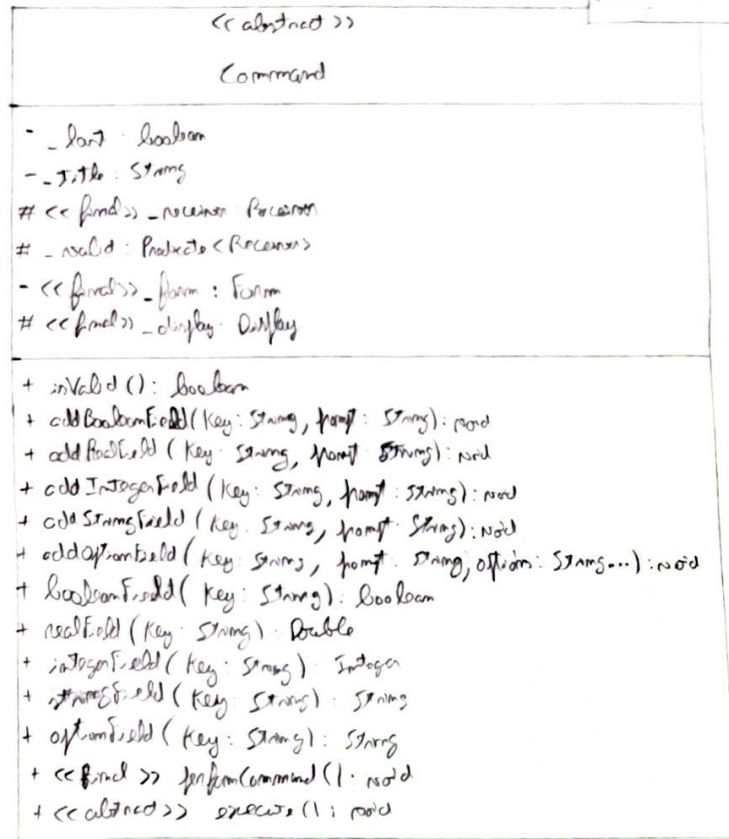 <<abstract>>
Command
- _last : boolean
- _title : String
# <<final>> _receiver : Receiver
# _valid : Predicate<Receiver>
- <<final>> _form : Form
# <<final>> _display : Display
+ isValid() : boolean
+ addBooleanField(key : String, prompt : String) : void
+ addRealField(key : String, prompt : String) : void
+ addIntegerField(key : String, prompt : String) : void
+ addStringField(key : String, prompt : String) : void
+ addOptionField(key : String, prompt : String, options : String...) : void
+ booleanField(key : String) : boolean
+ realField(key : String) : Double
+ integerField(key : String) : Integer
+ stringField(key : String) : String
+ optionField(key : String) : String
+ <<final>> performCommand() : void
+ <<abstract>> execute() : void